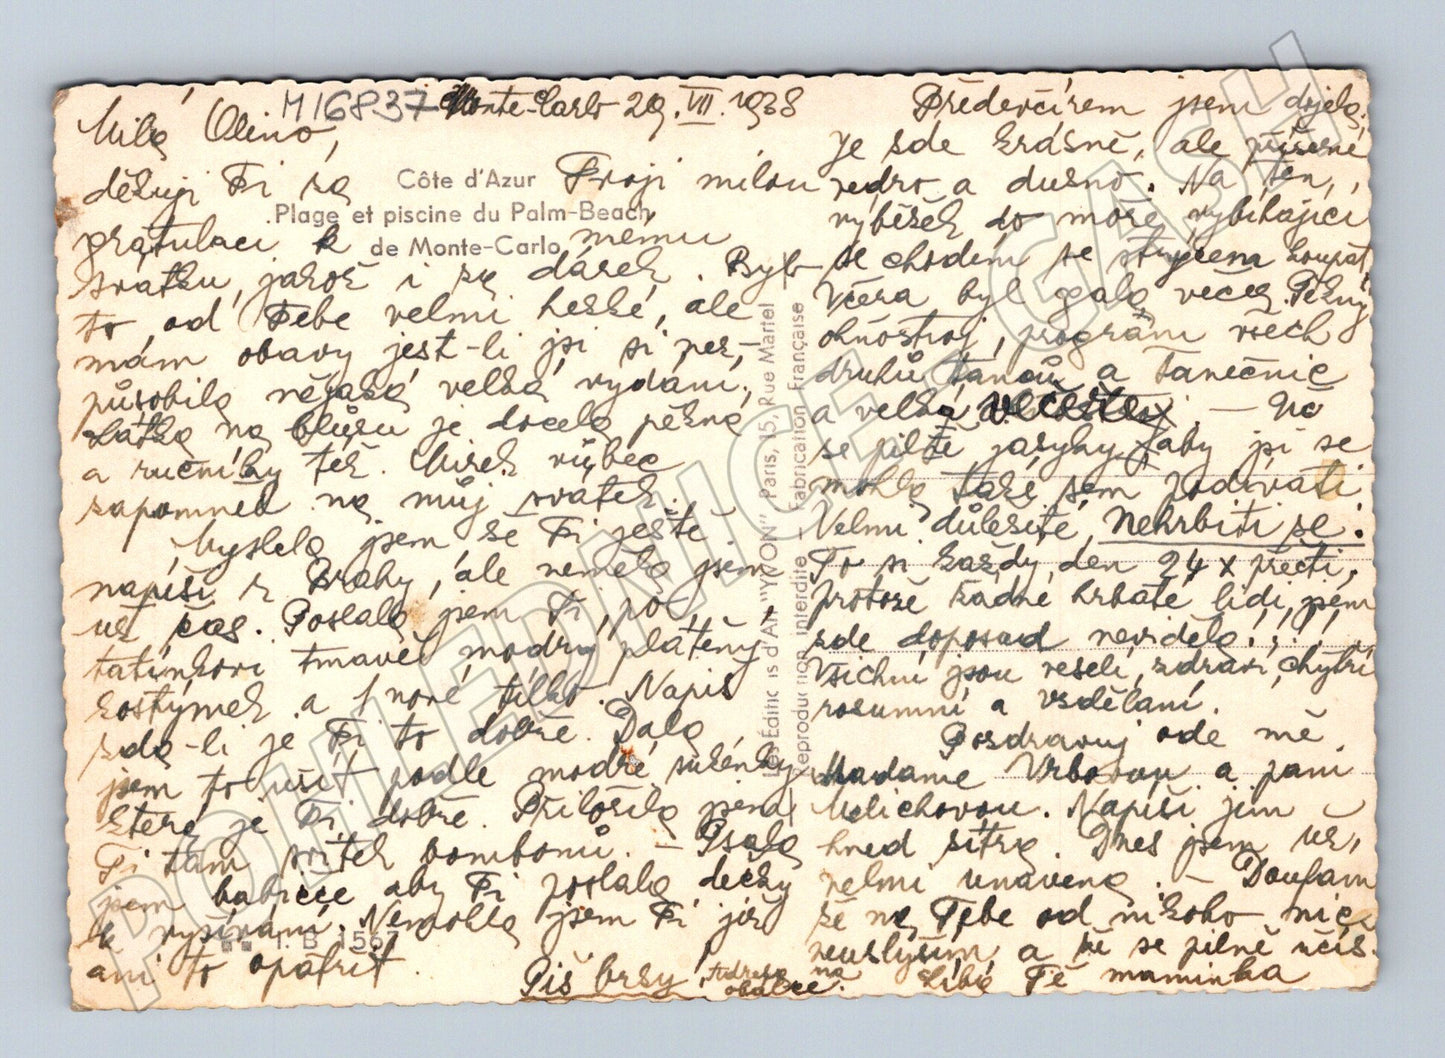 M16837
Monte-Carlo 29. VII. 1938
Milá Oleno,
děkuji Ti za Tvoji milou
gratulaci k mému
svátku, jakož i za dárek. Bylo
to od Tebe velmi hezké, ale
mám obavy jest-li jsi si nez-
působila nějaká velká vydání,
Látka na blůzu je docela pěkná
a ručníky též. Mirek vůbec
zapomněl na můj svátek.
Myslela jsem že Ti ještě
napíši z Prahy, ale neměla jsem
už čas. Poslala jsem Ti, po
tatínkovi tmavě modrý plátěný
kostýmek a 1 nové tílko. Napiš
zda-li je Ti to dobře. Dala
jsem to ušít podle modré sukénky
která je Ti dobře. Přiložila jsem
Ti tam pytlek bombonů. – Psala
jsem babičce aby Ti poslala dečky
k vyšívání. Nemohla jsem Ti již
ani to opatřit.
Piš brzy, Adresa na
obálce.
Côte d'Azur
Plage et piscine du Palm-Beach
de Monte-Carlo
I. B. 1567
Les Editions d'Art "YVON" Paris, 15, Rue Martel
Reproduction interdite - Fabrication Française
Předevčírem jsem dojela.
Je zde krásně, ale příšerné
vedro a dusno. Na ten,
výběžek do moře vybíhající
se chodím se koupat.
Včera byl gala večer. Pěkný
ohňostroj, program všech
druhů tanců a tanečnic
a velká – Uč
se pilně jazyky, aby jsi se
mohla také sem podívati.
Velmi důležité, Nehrbiti se!
To si každý den 24 x přečti.
Protože žádné hrbaté lidi, jsem
zde doposud neviděla!
Všichni jsou veselí, zdraví, chytří
rozumní a vzdělaní.
Pozdravuj ode mě
Madame Vrbovou a paní
Melichovou. Napíši jim
hned zítra. Dnes jsem už,
velmi unavena. – Doufám
že na Tebe od nikoho nic
neuslyším a že se pilně učíš.
Líbá Tě maminka
POHLEDNICE.CASH